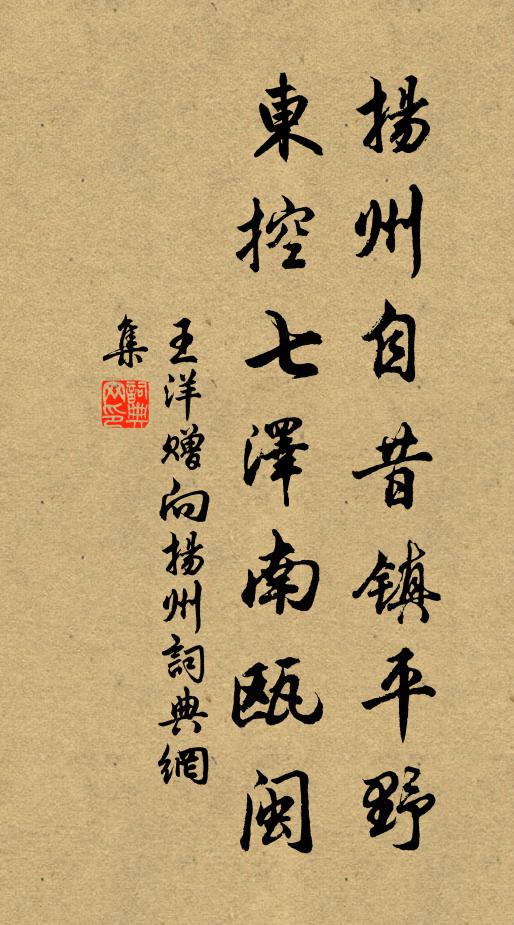 揚州自昔鎮平野
東控七澤南甌閩
王洋贈向揚州詞典網
集
詞典
网印